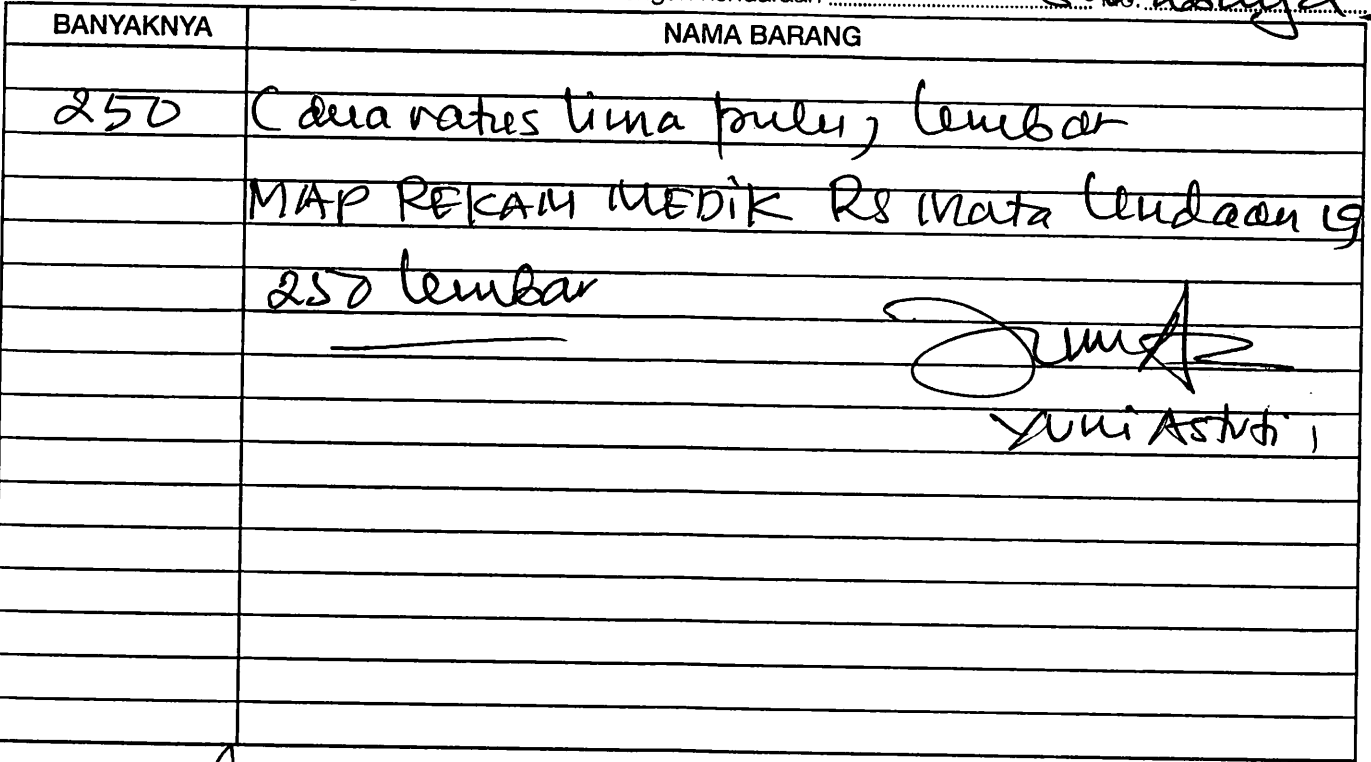 kendaraan No.
BANYAKNYA NAMA BARANG
250 (dua ratus lima pulu) lembar
MAP REKAM MEDIK RS Mata Undaan
250 lembar
Yuni Astuti